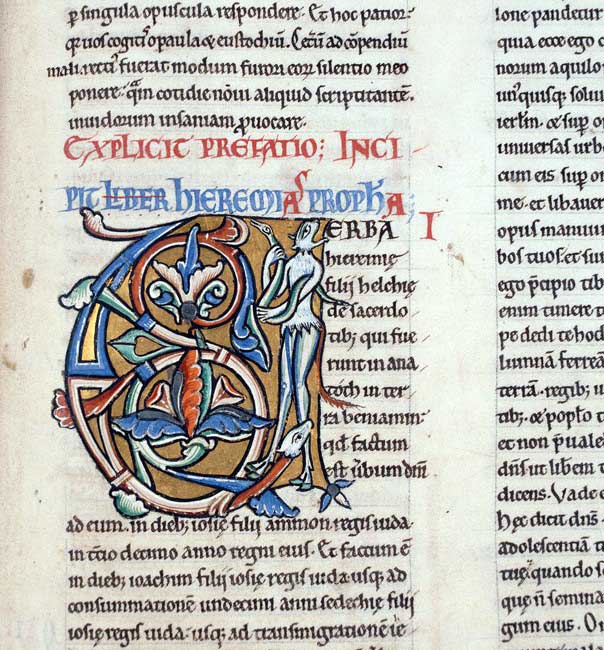 p singula opuscula respondere. Et hoc patior
quos cogit o paula & eustochiū. Certū ad cōpendiū
mali recti' fuerat modum furori eorū silentio meo
ponere: quā cotidie noui aliquid scriptitantē.
inuidorum insaniam puocare.
EXPLICIT PREFATIO; INCI
PIT LIBER HIEREMIAS PROPHA;
VERBA I
hieremie
filii helchie
de sacerdo
tib; qui fue
runt in ana
toth in ter
ra beniamin.
qd factum
est uerbum dnī
ad eum. in dieb; iosie filii ammon regis iuda.
in tcio decimo anno regni eius. Et factum ē
in dieb; ioachim filii iosie regis iuda usq; ad
consummationē undecimi anni sedechie filii
iosie regis iuda. usq; ad transmigrationē ie
ione pandetur
quia ecce ego c
norum aquilon
un'quisq; soliu
ierlm. & sup o
uniuersas urbe
cum eis sup om
me. et libauer
opus manuum
bos tuos. et su
ego pcipio tib
enim timere t
pe dedi te hod
lumnā ferreā
teriā. regib; iu
tib;. & poplo t
et non pualeb
dns ut liberem t
dicens. Vade &
Hec dicit dns
adolescentiā t
tue. quando se
que ñ semina
gum eius. O